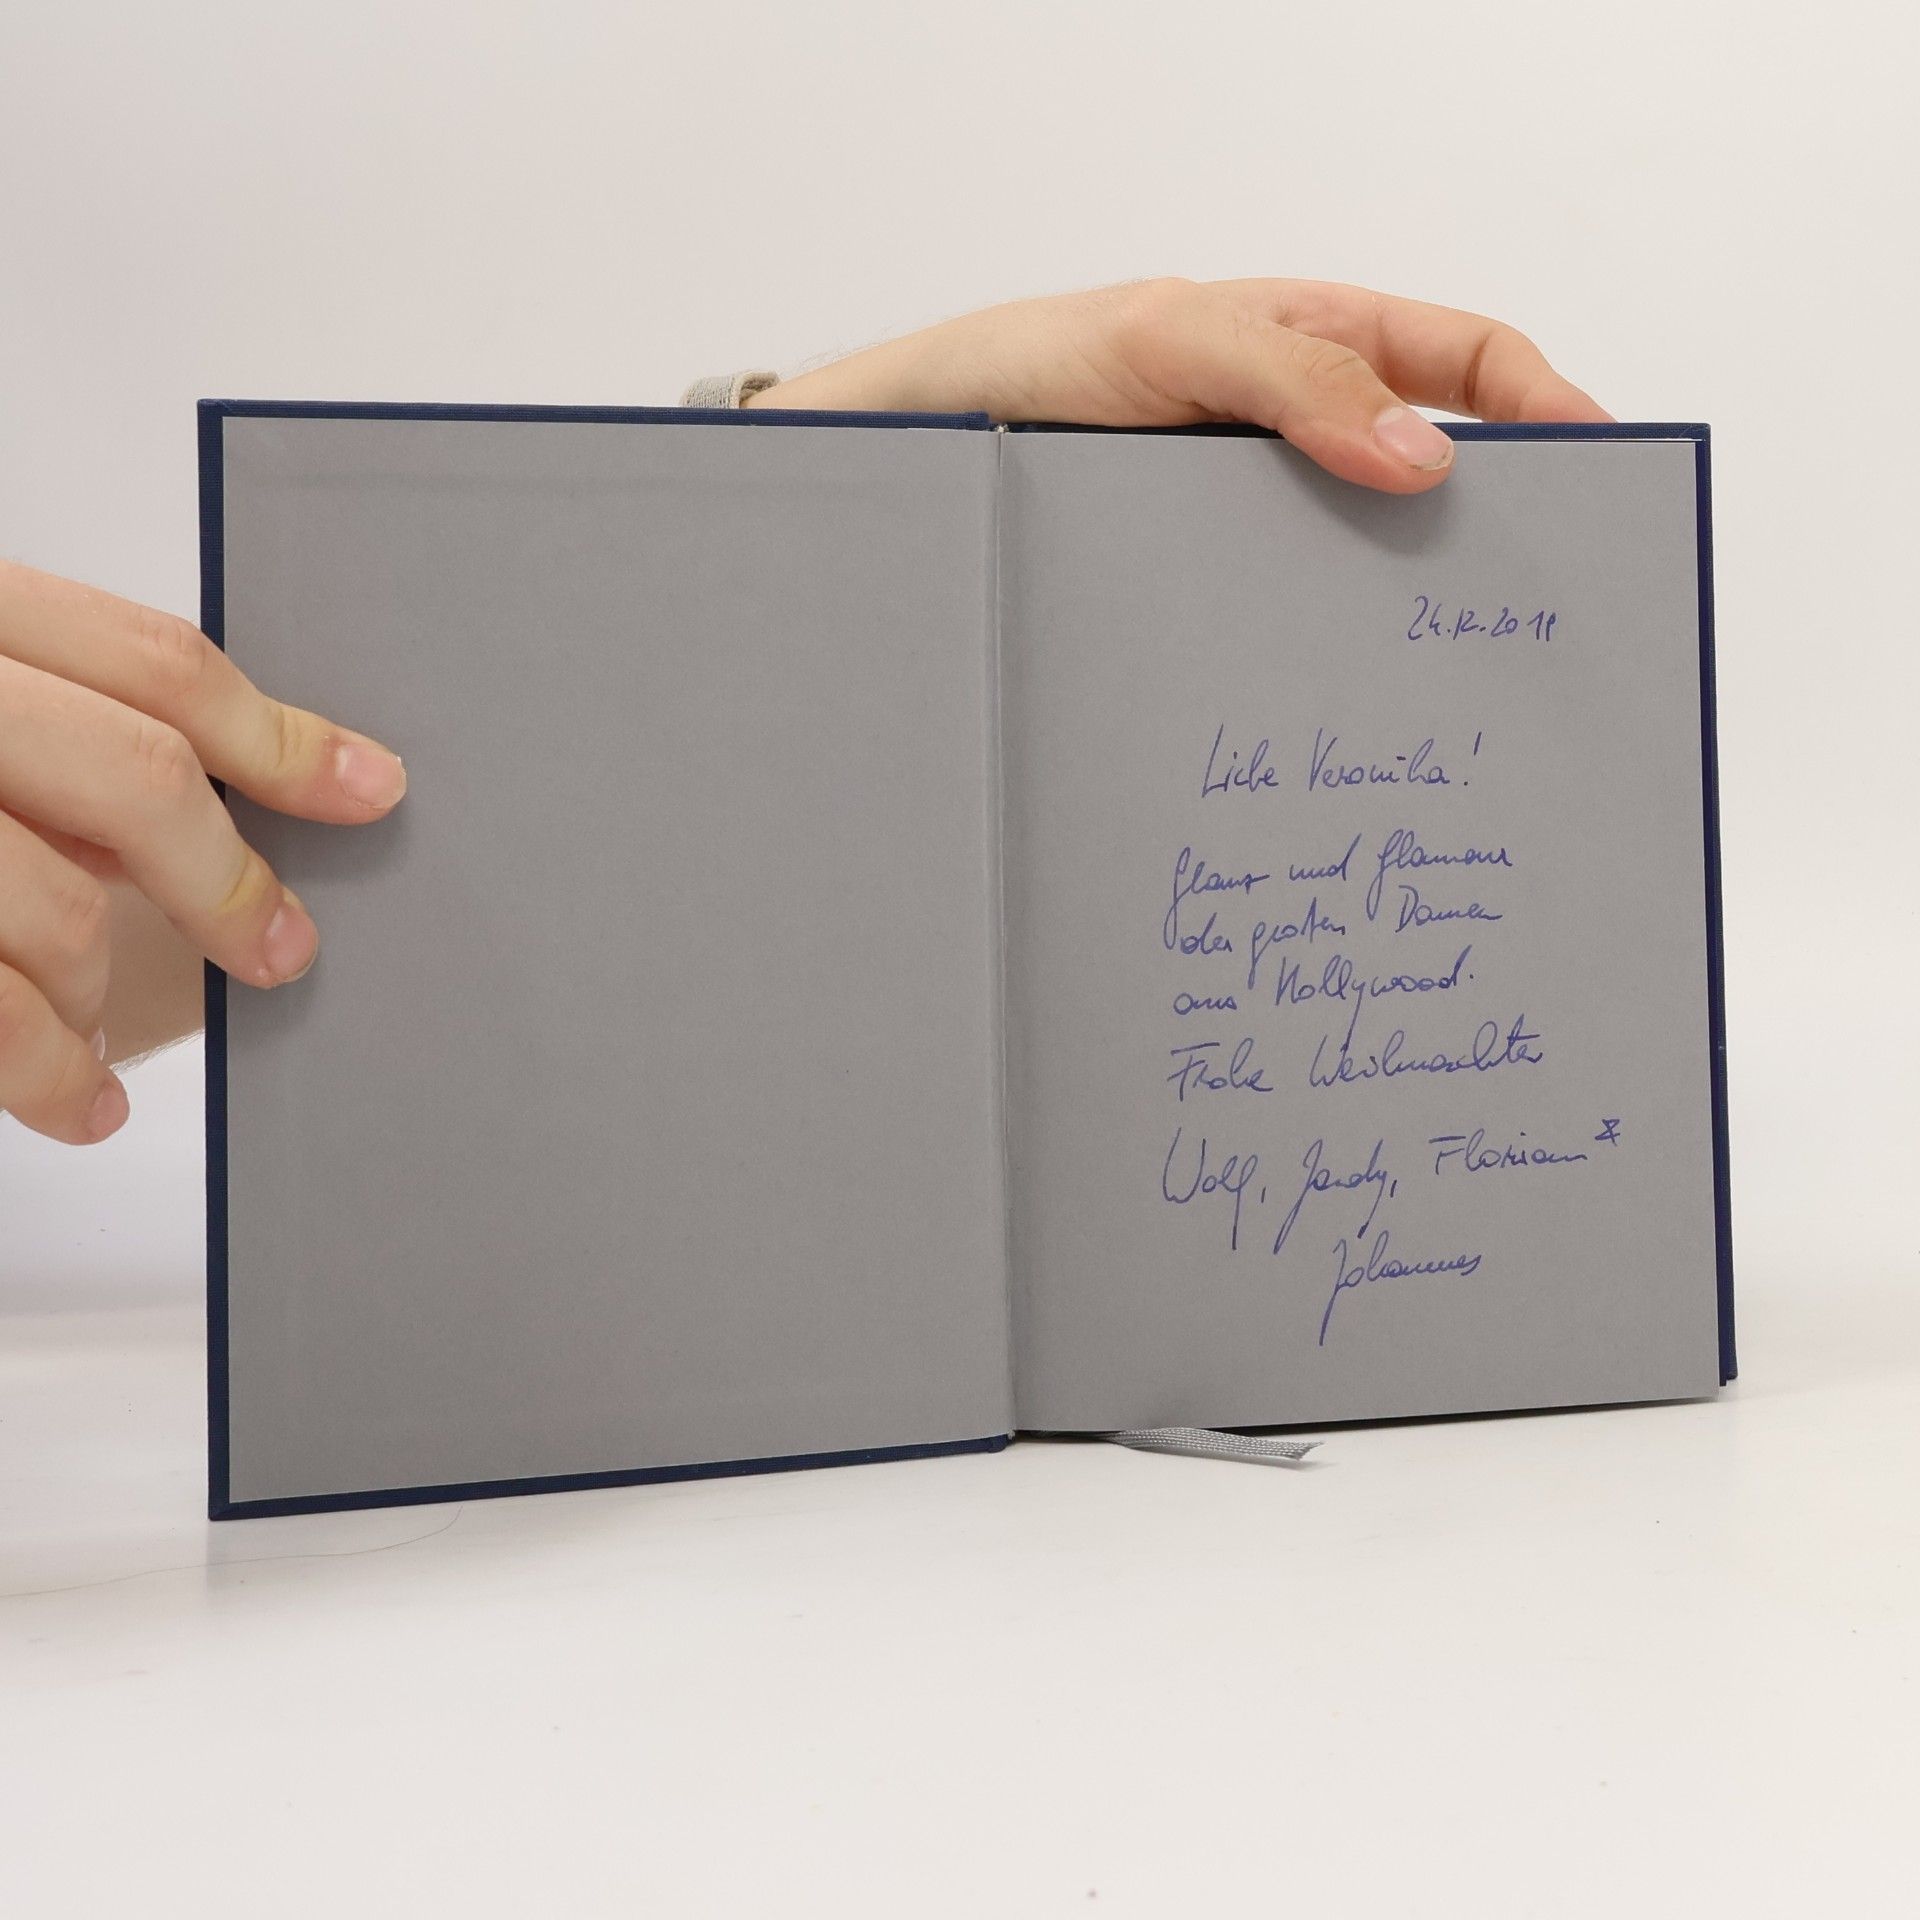 24.12.2018
Liebe Veronika!
Glanz und Glamour
der großen Damen
aus Hollywood.
Frohe Weihnachten
Wolf, Jandy, Florian &
Johannes